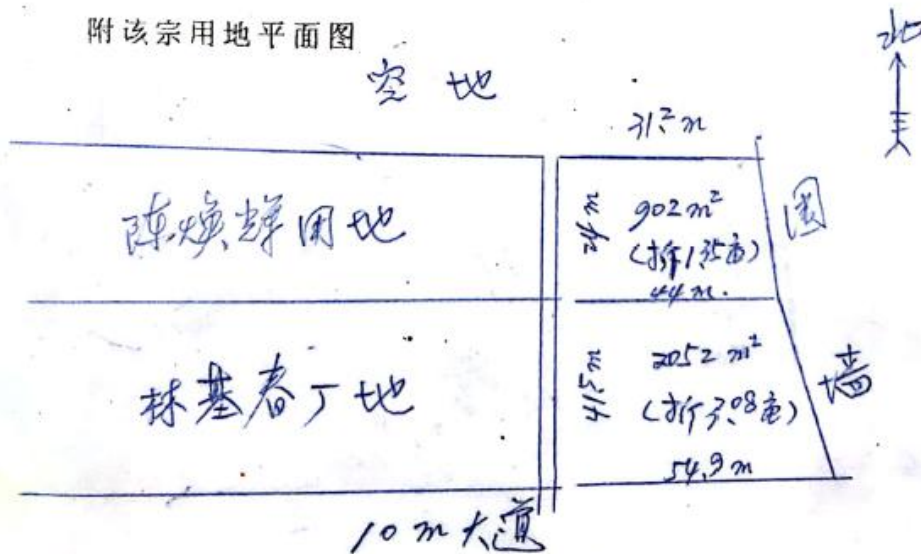 附该宗用地平面图
北
空地
31.2m
陈焕辉用地
24m
902m²
(折1.35亩)
44m.
围
林基春厂地
41.5m
2052m²
(折3.08亩)
墙
54.9m
10m大道